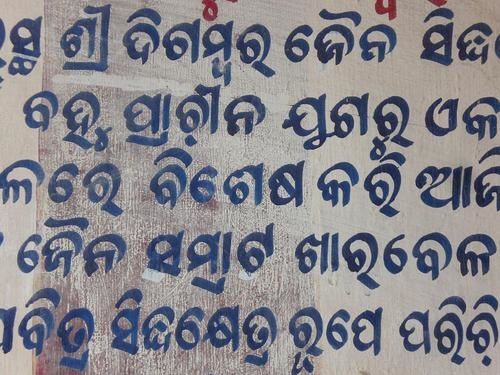 ସ୍ଥ ଶ୍ରୀ ଦିଗମ୍ବର ଜୈନ ସିଦ୍ଧ
ବହୁ ପ୍ରାଚୀନ ଯୁଗରୁ ଏକ
ଳରେ ବିଶେଷ କରି ଆଜି
ଜୈନ ସମ୍ରାଟ ଖାରବେଳ
ପବିତ୍ର ସିଦ୍ଧକ୍ଷେତ୍ର ରୂପେ ପରିଚି